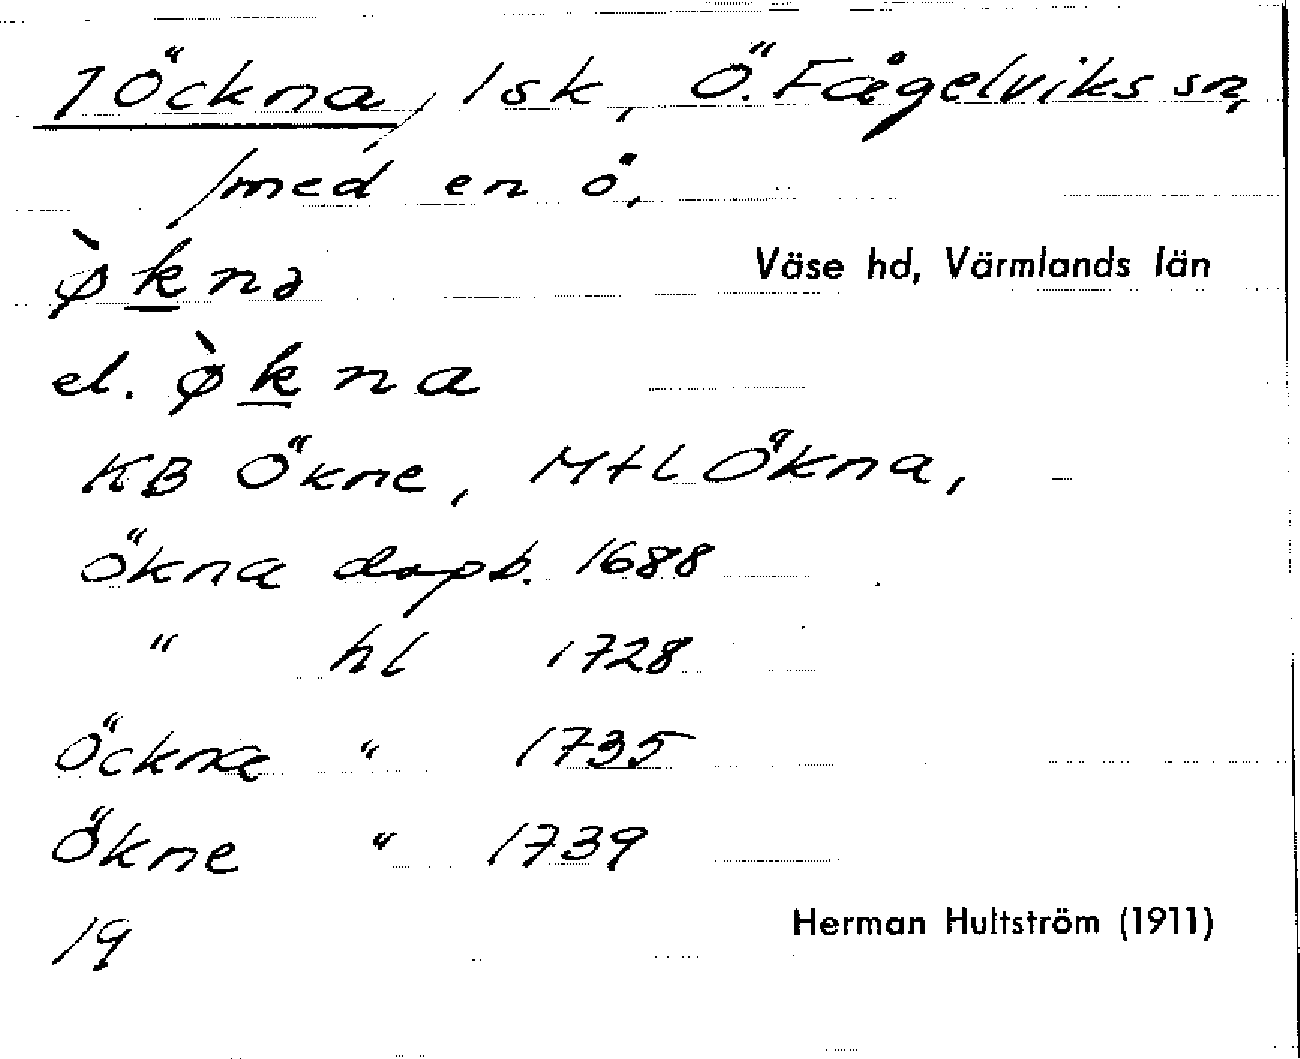 1 Öckna, 1 sk, Ö. Fågelviks sn,
/med en ö,
ø̀k̲nə
Väse hd, Värmlands län
el. ø̀k̲na
KB Ökne, Mtl Ökna,
Ökna dopb. 1688
" hl 1728
Öckna " 1735
Ökne " 1739
19
Herman Hultström (1911)